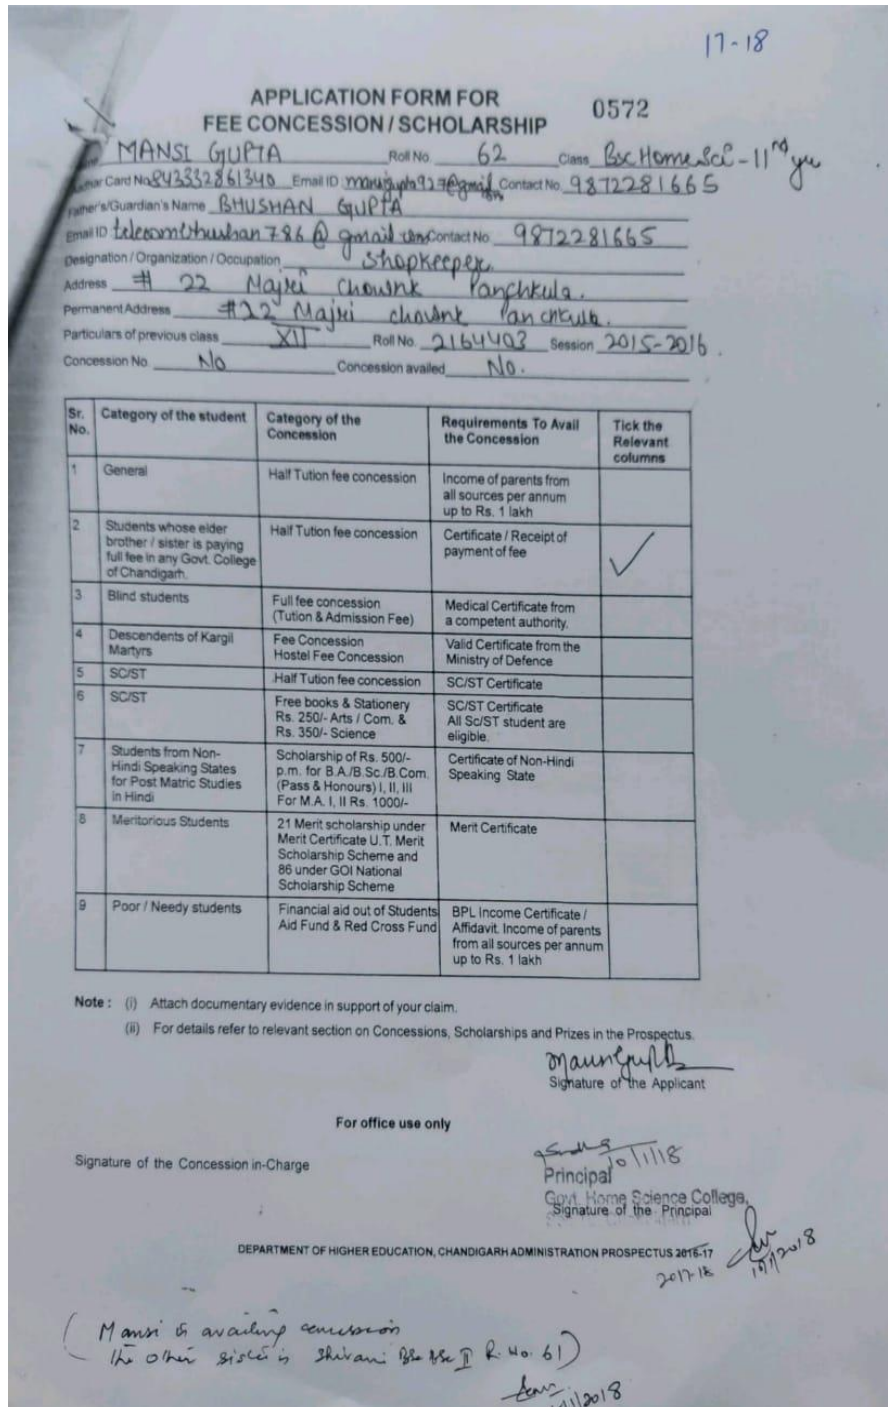 17-18
APPLICATION FORM FOR
FEE CONCESSION / SCHOLARSHIP 0572
MANSI GUPTA Roll No. 62 Class BscHomeSci - 11nd yr
Card No. 843332861340 Email ID mansigupta927@gmail Contact No. 9872281665
Father's/Guardian's Name BHUSHAN GUPTA
Email ID telecombhushan786@gmail.com Contact No. 9872281665
Designation / Organization / Occupation Shopkeeper
Address # 22 Majri chownk Panchkula.
Permanent Address #22 Majri chownk Panchkula.
Particulars of previous class XII Roll No. 2164403 Session 2015-2016.
Concession No. No Concession availed No.
Sr. No. Category of the student Category of the Concession Requirements To Avail the Concession Tick the Relevant columns
1 General Half Tution fee concession Income of parents from all sources per annum up to Rs. 1 lakh
2 Students whose elder brother / sister is paying full fee in any Govt. College of Chandigarh. Half Tution fee concession Certificate / Receipt of payment of fee ✓
3 Blind students Full fee concession (Tution & Admission Fee) Medical Certificate from a competent authority.
4 Descendents of Kargil Martyrs Fee Concession Hostel Fee Concession Valid Certificate from the Ministry of Defence
5 SC/ST Half Tution fee concession SC/ST Certificate
6 SC/ST Free books & Stationery Rs. 250/- Arts / Com. & Rs. 350/- Science SC/ST Certificate All Sc/ST student are eligible.
7 Students from Non-Hindi Speaking States for Post Matric Studies in Hindi Scholarship of Rs. 500/- p.m. for B.A./B.Sc./B.Com. (Pass & Honours) I, II, III For M.A. I, II Rs. 1000/- Certificate of Non-Hindi Speaking State
8 Meritorious Students 21 Merit scholarship under Merit Certificate U.T. Merit Scholarship Scheme and 86 under GOI National Scholarship Scheme Merit Certificate
9 Poor / Needy students Financial aid out of Students Aid Fund & Red Cross Fund BPL Income Certificate / Affidavit. Income of parents from all sources per annum up to Rs. 1 lakh
Note : (i) Attach documentary evidence in support of your claim.
(ii) For details refer to relevant section on Concessions, Scholarships and Prizes in the Prospectus.
Mansi Gupta
Signature of the Applicant
For office use only
10/1/18
Signature of the Concession in-Charge
Principal
Govt. Home Science College,
Signature of the Principal
DEPARTMENT OF HIGHER EDUCATION, CHANDIGARH ADMINISTRATION PROSPECTUS 2016-17
2017-18
(Mansi is availing concession
the other sister is Shivani Bsc II R. No. 61)